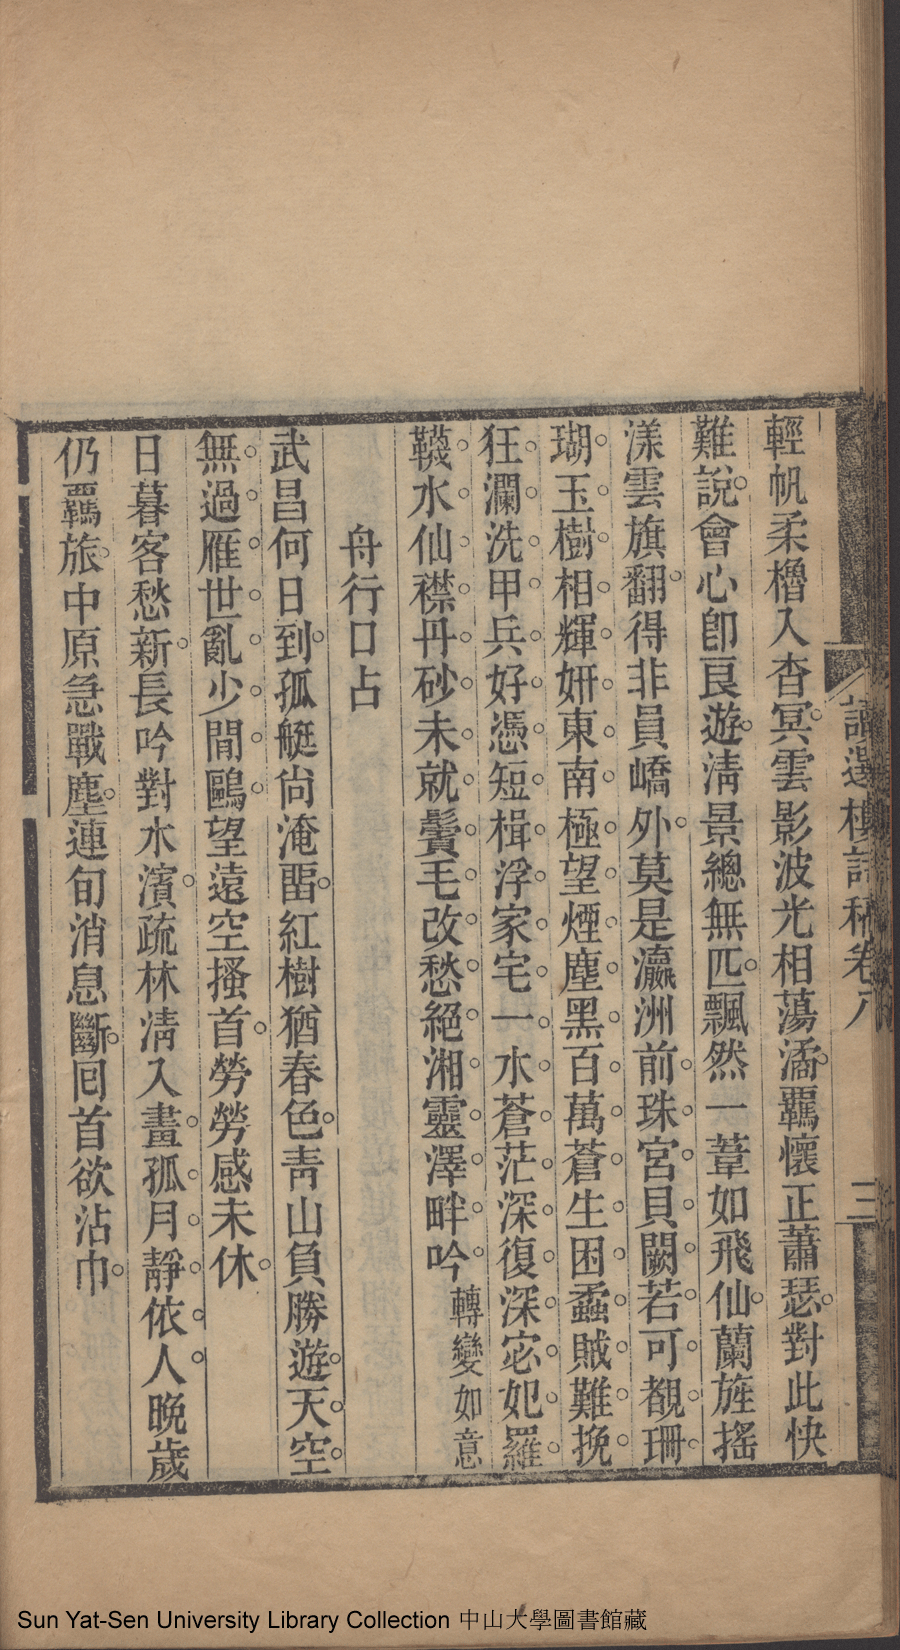 讀選樓詩稿卷八
三
輕帆柔櫓入杳冥雲影波光相蕩潏羈懷正蕭瑟對此快
難說會心卽良遊淸景總無匹飄然一葦如飛仙蘭旌搖
漾雲旗翻得非員嶠外莫是瀛洲前珠宮貝闕若可覩珊
瑚玉樹相輝妍東南極望煙塵黑百萬蒼生困蟊賊難挽
狂瀾洗甲兵好憑短楫浮家宅一水蒼茫深復深宓妃羅
韈水仙襟丹砂未就鬢毛改愁絕湘靈澤畔吟 轉變如意
舟行口占
武昌何日到孤艇尙淹畱紅樹猶春色靑山負勝遊天空
無過雁世亂少閒鷗望遠空搔首勞勞感未休
日暮客愁新長吟對水濱疏林淸入畫孤月靜依人晩歲
仍羈旅中原急戰塵連旬消息斷囘首欲沾巾
Sun Yat-Sen University Library Collection 中山大學圖書館藏